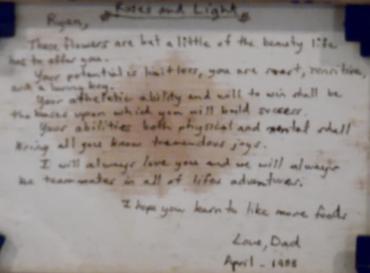 Roses and Light
Ryan,
These flowers are but a little of the beauty life
has to offer you.
Your potential is limitless, you are smart, sensitive,
and a loving boy.
Your athletic ability and will to win shall be
the bases upon which you will build success.
Your abilities both physical and mental shall
bring all you know tremendous joys.
I will always love you and we will always
be teammates in all of lifes adventures.
I hope you learn to like more foods
Love, Dad
April - 1988